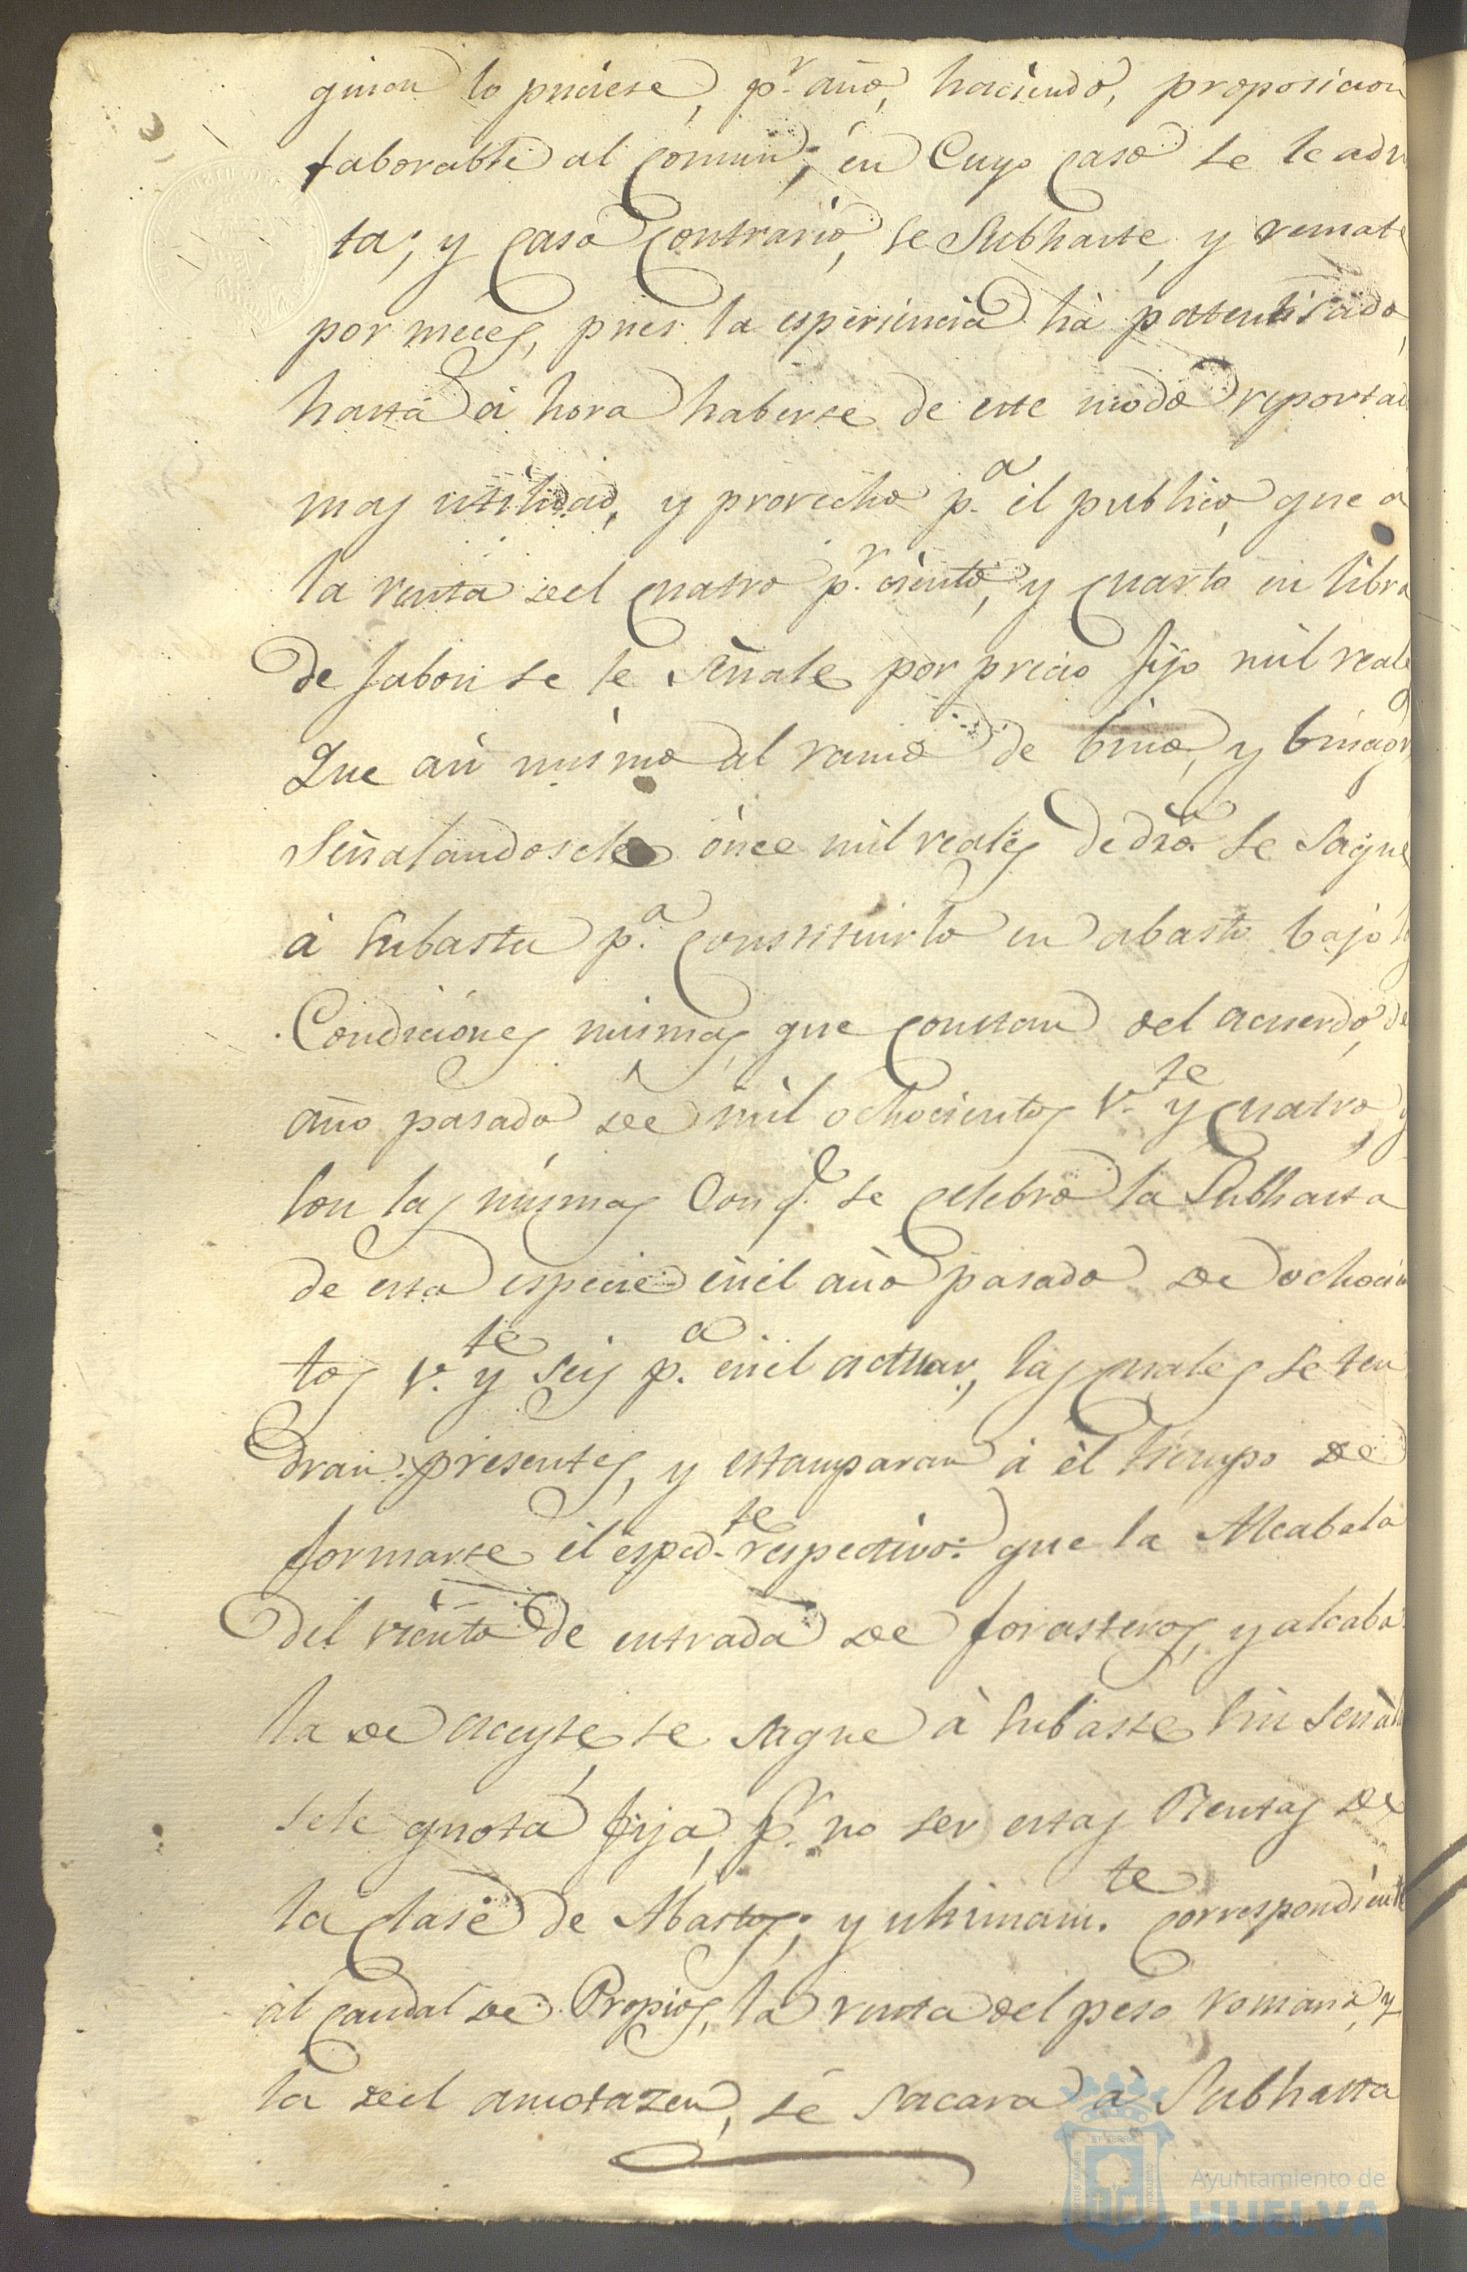 quien lo puciese, p.r año, haciendo, proposicion
faborable al Comun; en Cuyo Caso se le adm
ta; y Caso Contrario, se Subhaste, y remate
por meces, pues la esperiencia há patentisado,
hasta á hora haberse de este modo reportad
mas utilidad, y provecho p.a el publico, que á
la renta del Cuatro p.r ciento, y Cuarto en libra
de Jabon se le señale por precio fijo mil reale
Que asi mismo al ramo de bino, y binagr
Señalandosele once mil reales de dro. se saque
á Subasta p.a Constituirlo en abasto bajo l
Condiciones mismas, que Constan del acuerdo, de
año pasado de mil ochocientos V.te y Cuatro, y
Con las mismas Con q.e se Celebro la Subhasta
de esta especie enel año pasado de ochocien
tos V.te y Seis p.a enel actuar, las Cuales se ten
dran presentes, y estamparan á el tiempo de
formarse el esped.te respectivo: que la Alcabala
del viento de entrada de forasteros, y alcaba
la de aceyte, se saque á Subaste Sin Señal
sele quota fija, p.r no ser estas Rentas de
la Clase de Abastos; y ultimam.te Correspondiente
al Caudal de Propios, la renta del peso romana, y
la del amotazen, se sacara á Subhasta
Ayuntamiento de
HUELVA